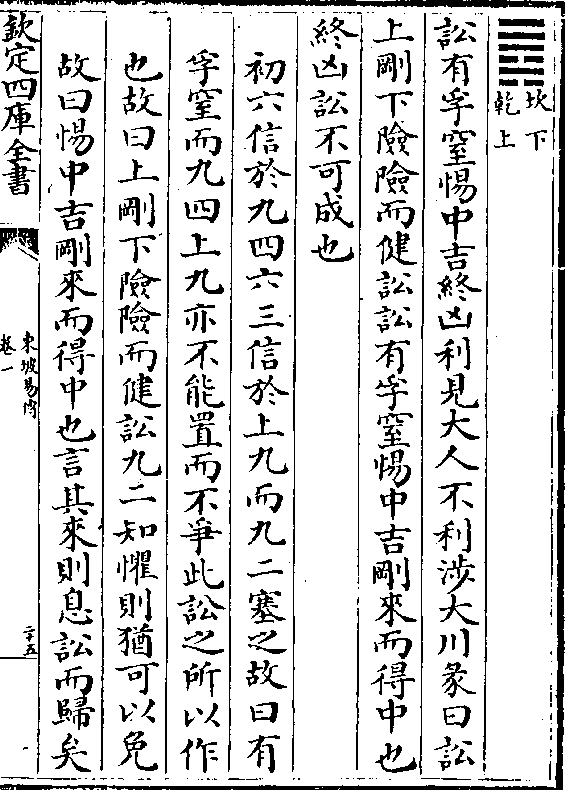 坎下
乾上
訟有孚窒惕中吉終凶利見大人不利涉大川彖曰訟
上剛下險險而健訟訟有孚窒惕中吉剛來而得中也
終凶訟不可成也
初六信於九四六三信於上九而九二塞之故曰有
孚窒而九四上九亦不能置而不爭此訟之所以作
也故曰上剛下險險而健訟九二知懼則猶可以免
故曰惕中吉剛來而得中也言其來則息訟而歸矣
欽定四庫全書
東坡易傳
卷一
二十五